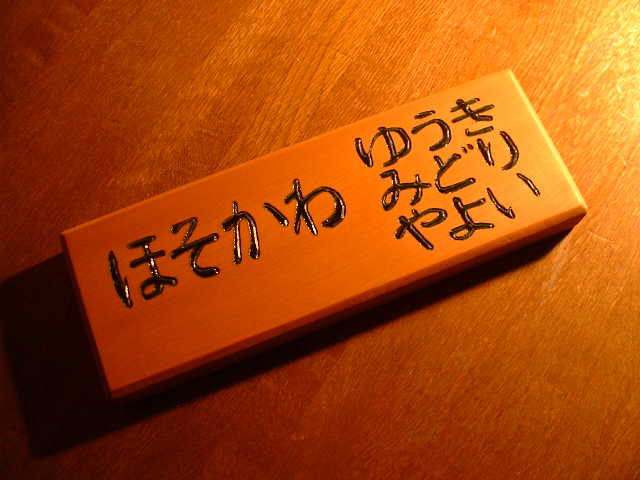 ほそかわ
ゆうき
みどり
やよい